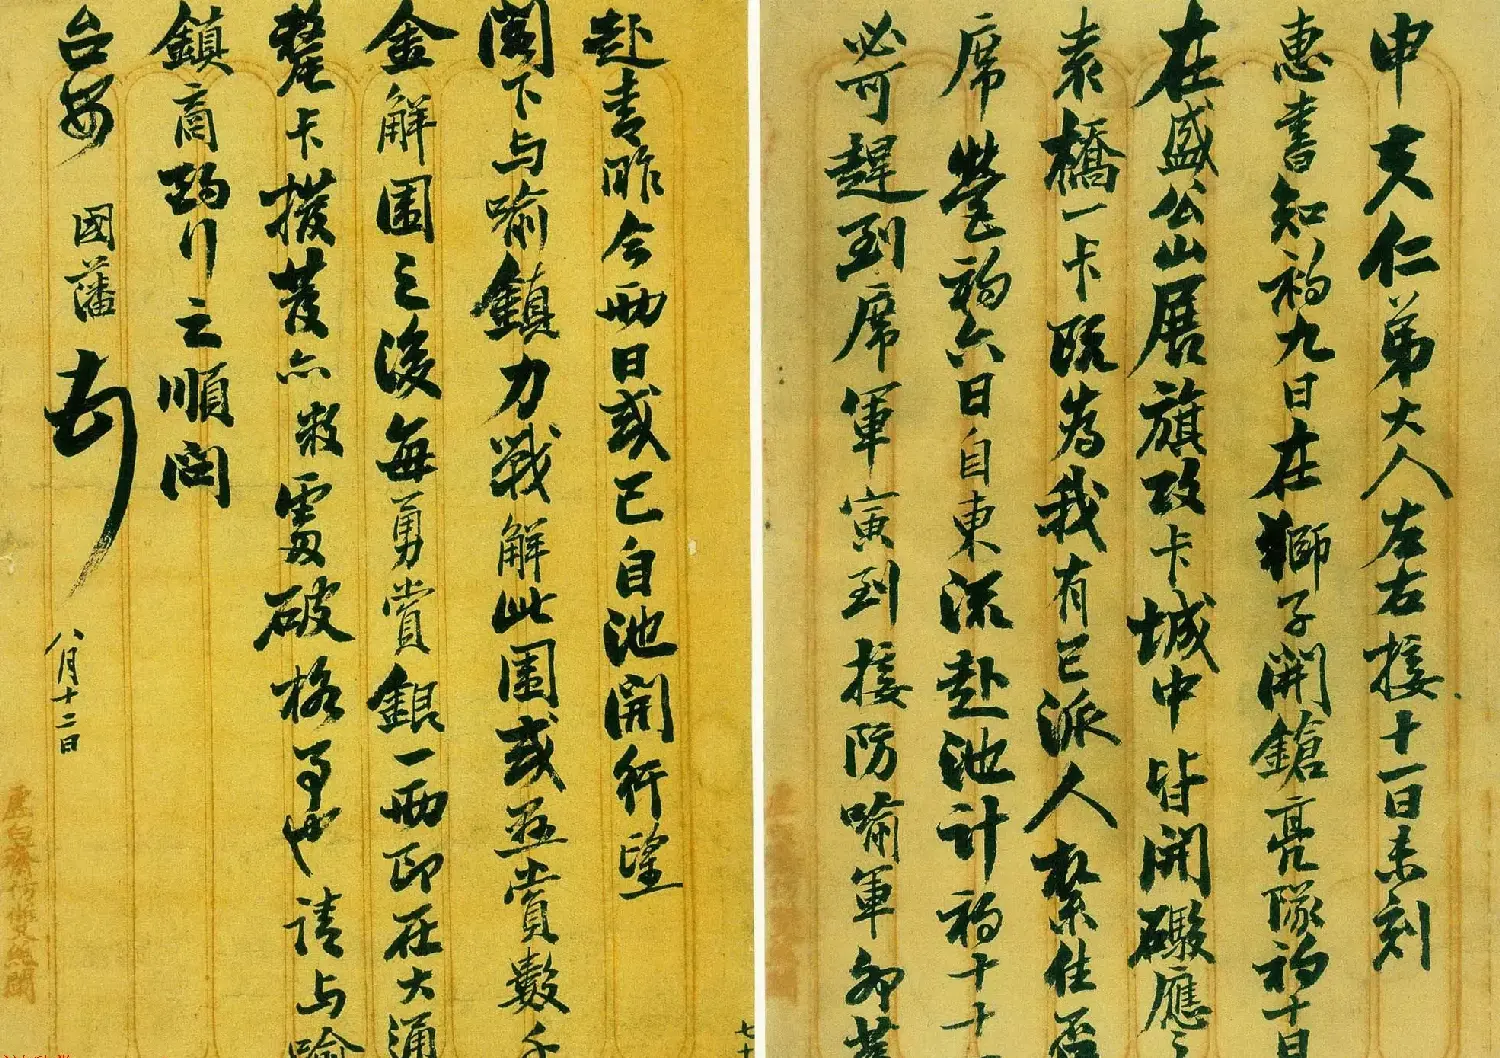 申夫仁弟大人左右接十一日未刻
惠書知初九日在獅子開鎗亮隊初十日
在盛公山展旗攻卡城中皆開礮應之
袁橋一卡既為我有已派人紮住否
席營初六日自東流赴池計初十十一
必可趕到席軍寅到接防喻軍卯
赴青昨今兩日或已自池開行望
閣下与喻鎮力戰解此圍或並賞數千
金解圍之後每勇賞銀一兩即在大通
釐卡撥發亦救急破格事也請与喻
鎮商酌行之順問
台安 國藩
八月十二日
虛白齋
七十